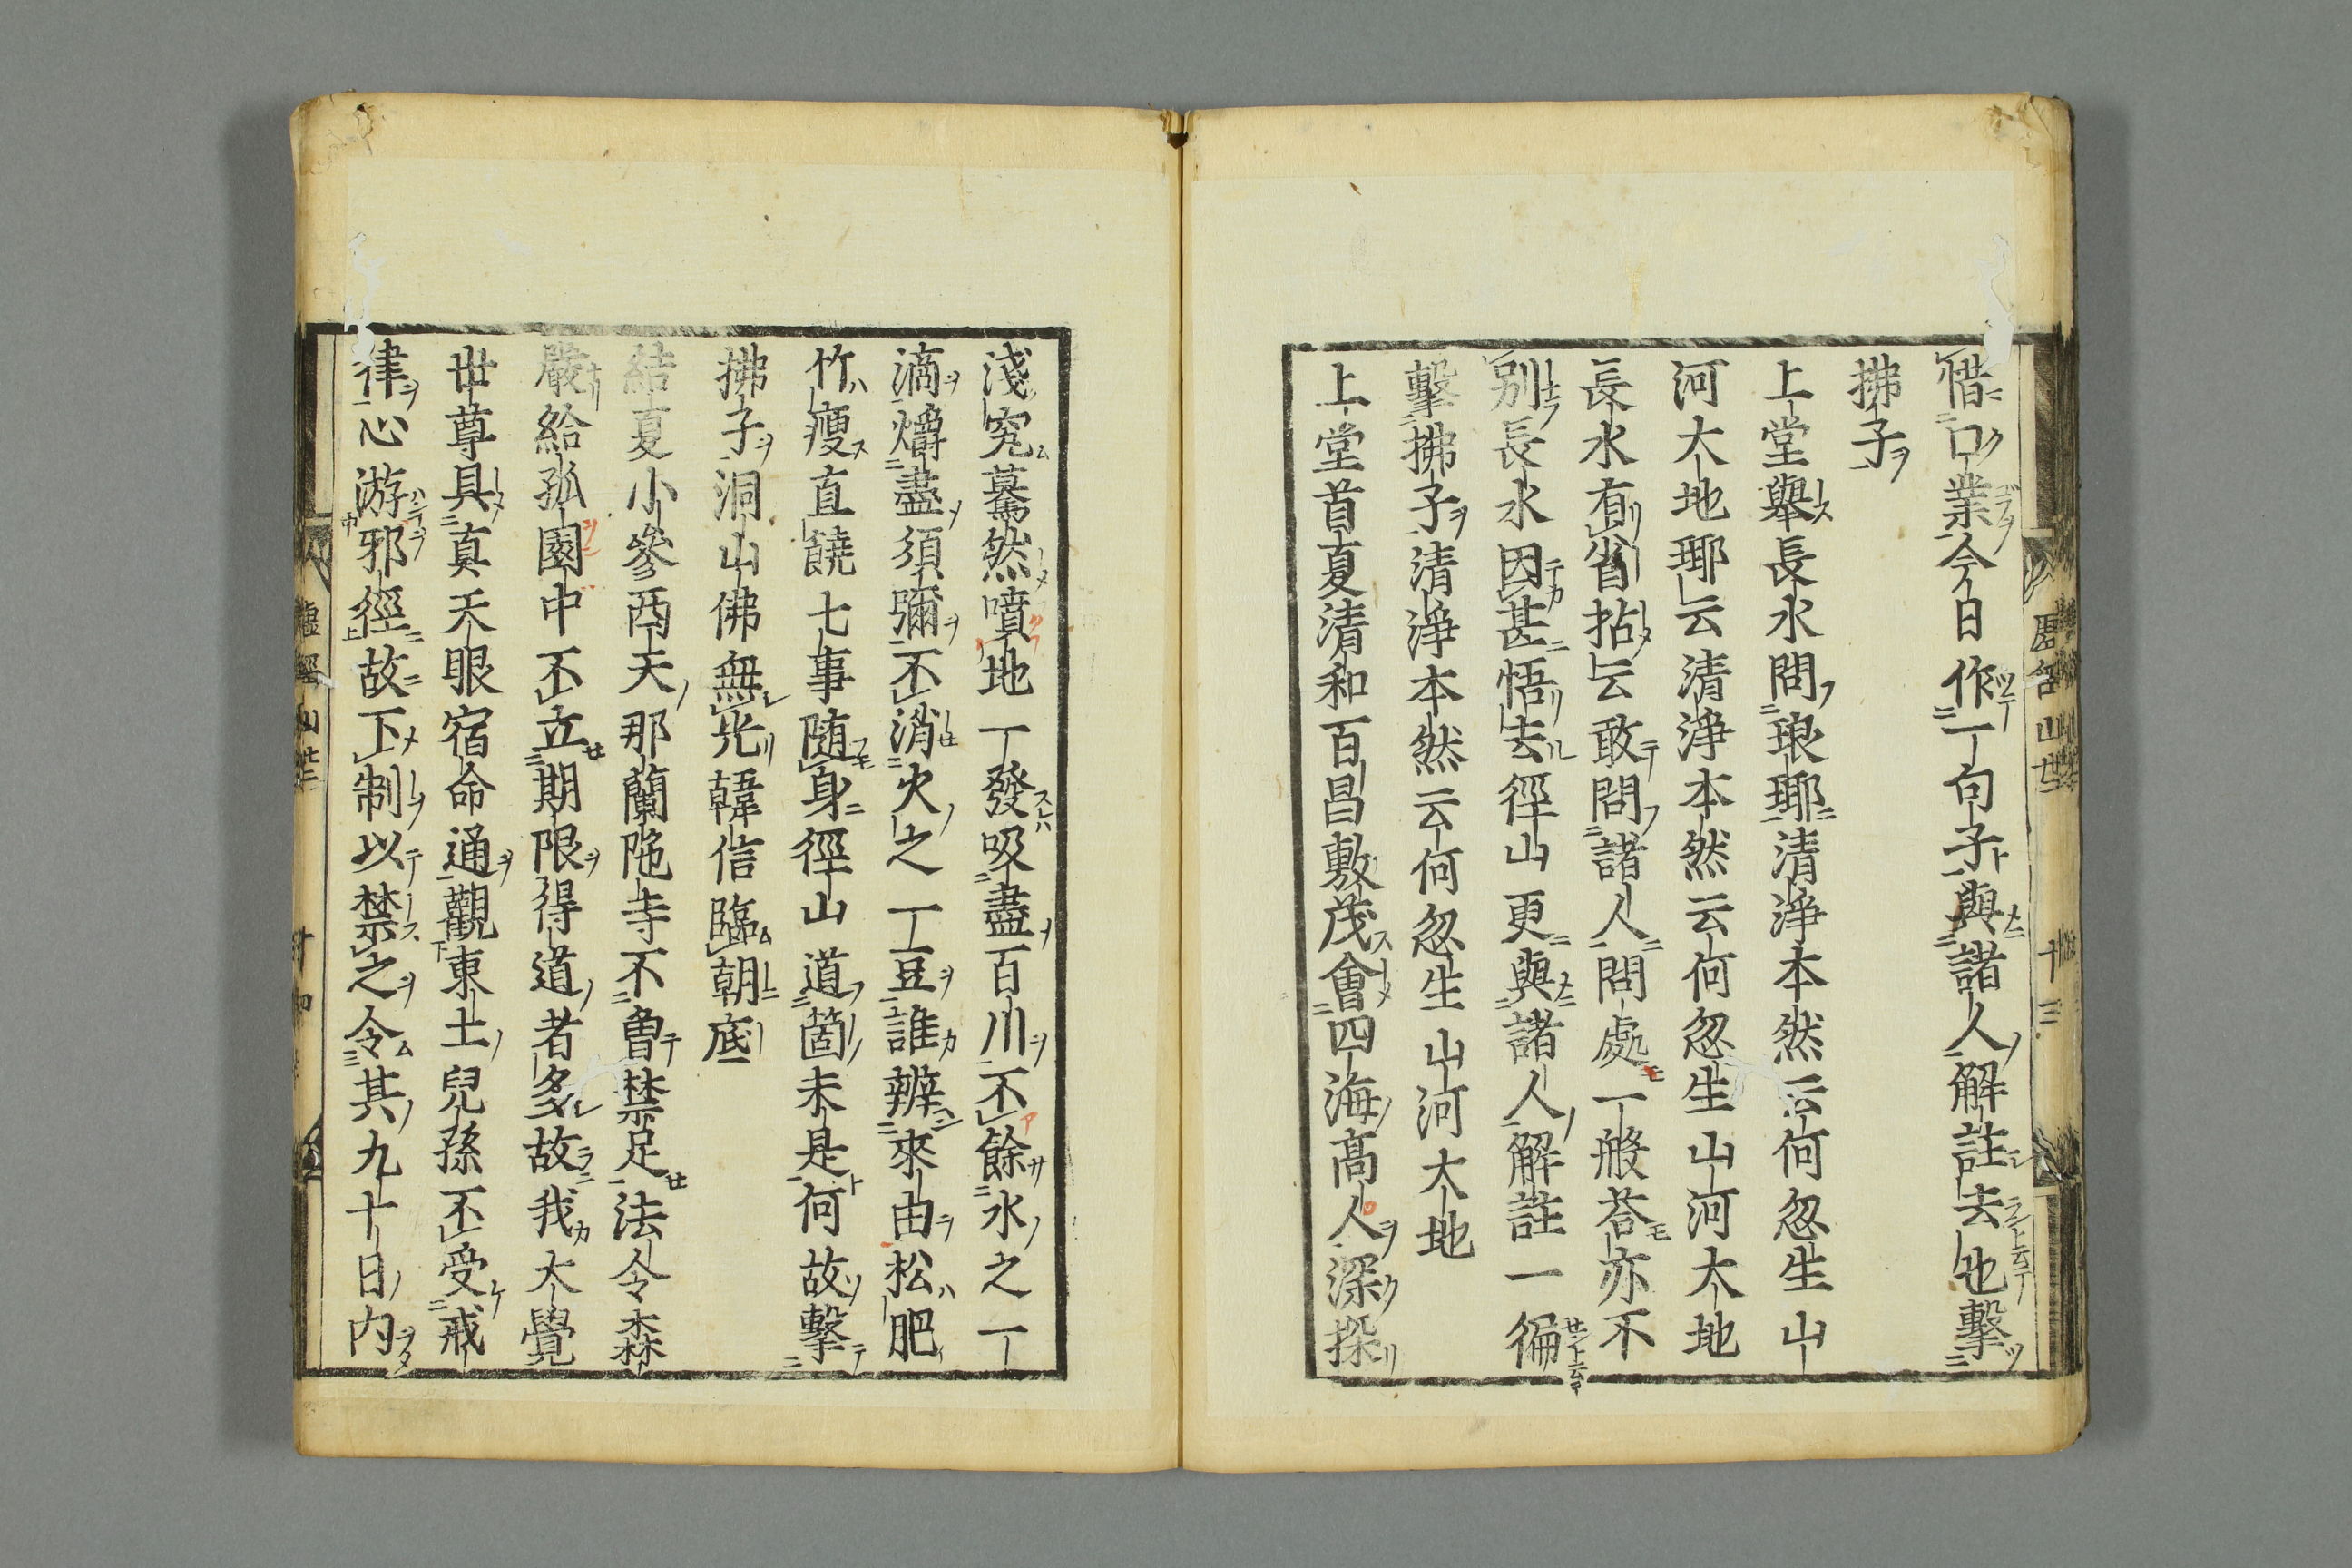 惜口業今日作一句子與諸人解註去也擊
拂子
上堂舉長水問瑯瑘清淨本然云何忽生山
河大地瑘云清淨本然云何忽生山河大地
長水有省拈云敢問諸人問處一般荅亦不
別長水因甚悟去徑山更與諸人解註一徧
擊拂子清淨本然云何忽生山河大地
上堂首夏清和百昌敷茂會四海高人深探
淺究驀然噴地一發吸盡百川不餘水之一
滴爝盡須彌不消火之一豆誰辨來由松肥
竹瘦直饒七事随身徑山道箇未是何故擊
拂子洞山佛無光韓信臨朝底
結夏小參西天那蘭陁寺不曾禁足法令森
嚴給孤園中不立期限得道者多故我大覺
世尊具真天眼宿命通觀東土兒孫不受戒
律心游邪徑故下制以禁之令其九十日内